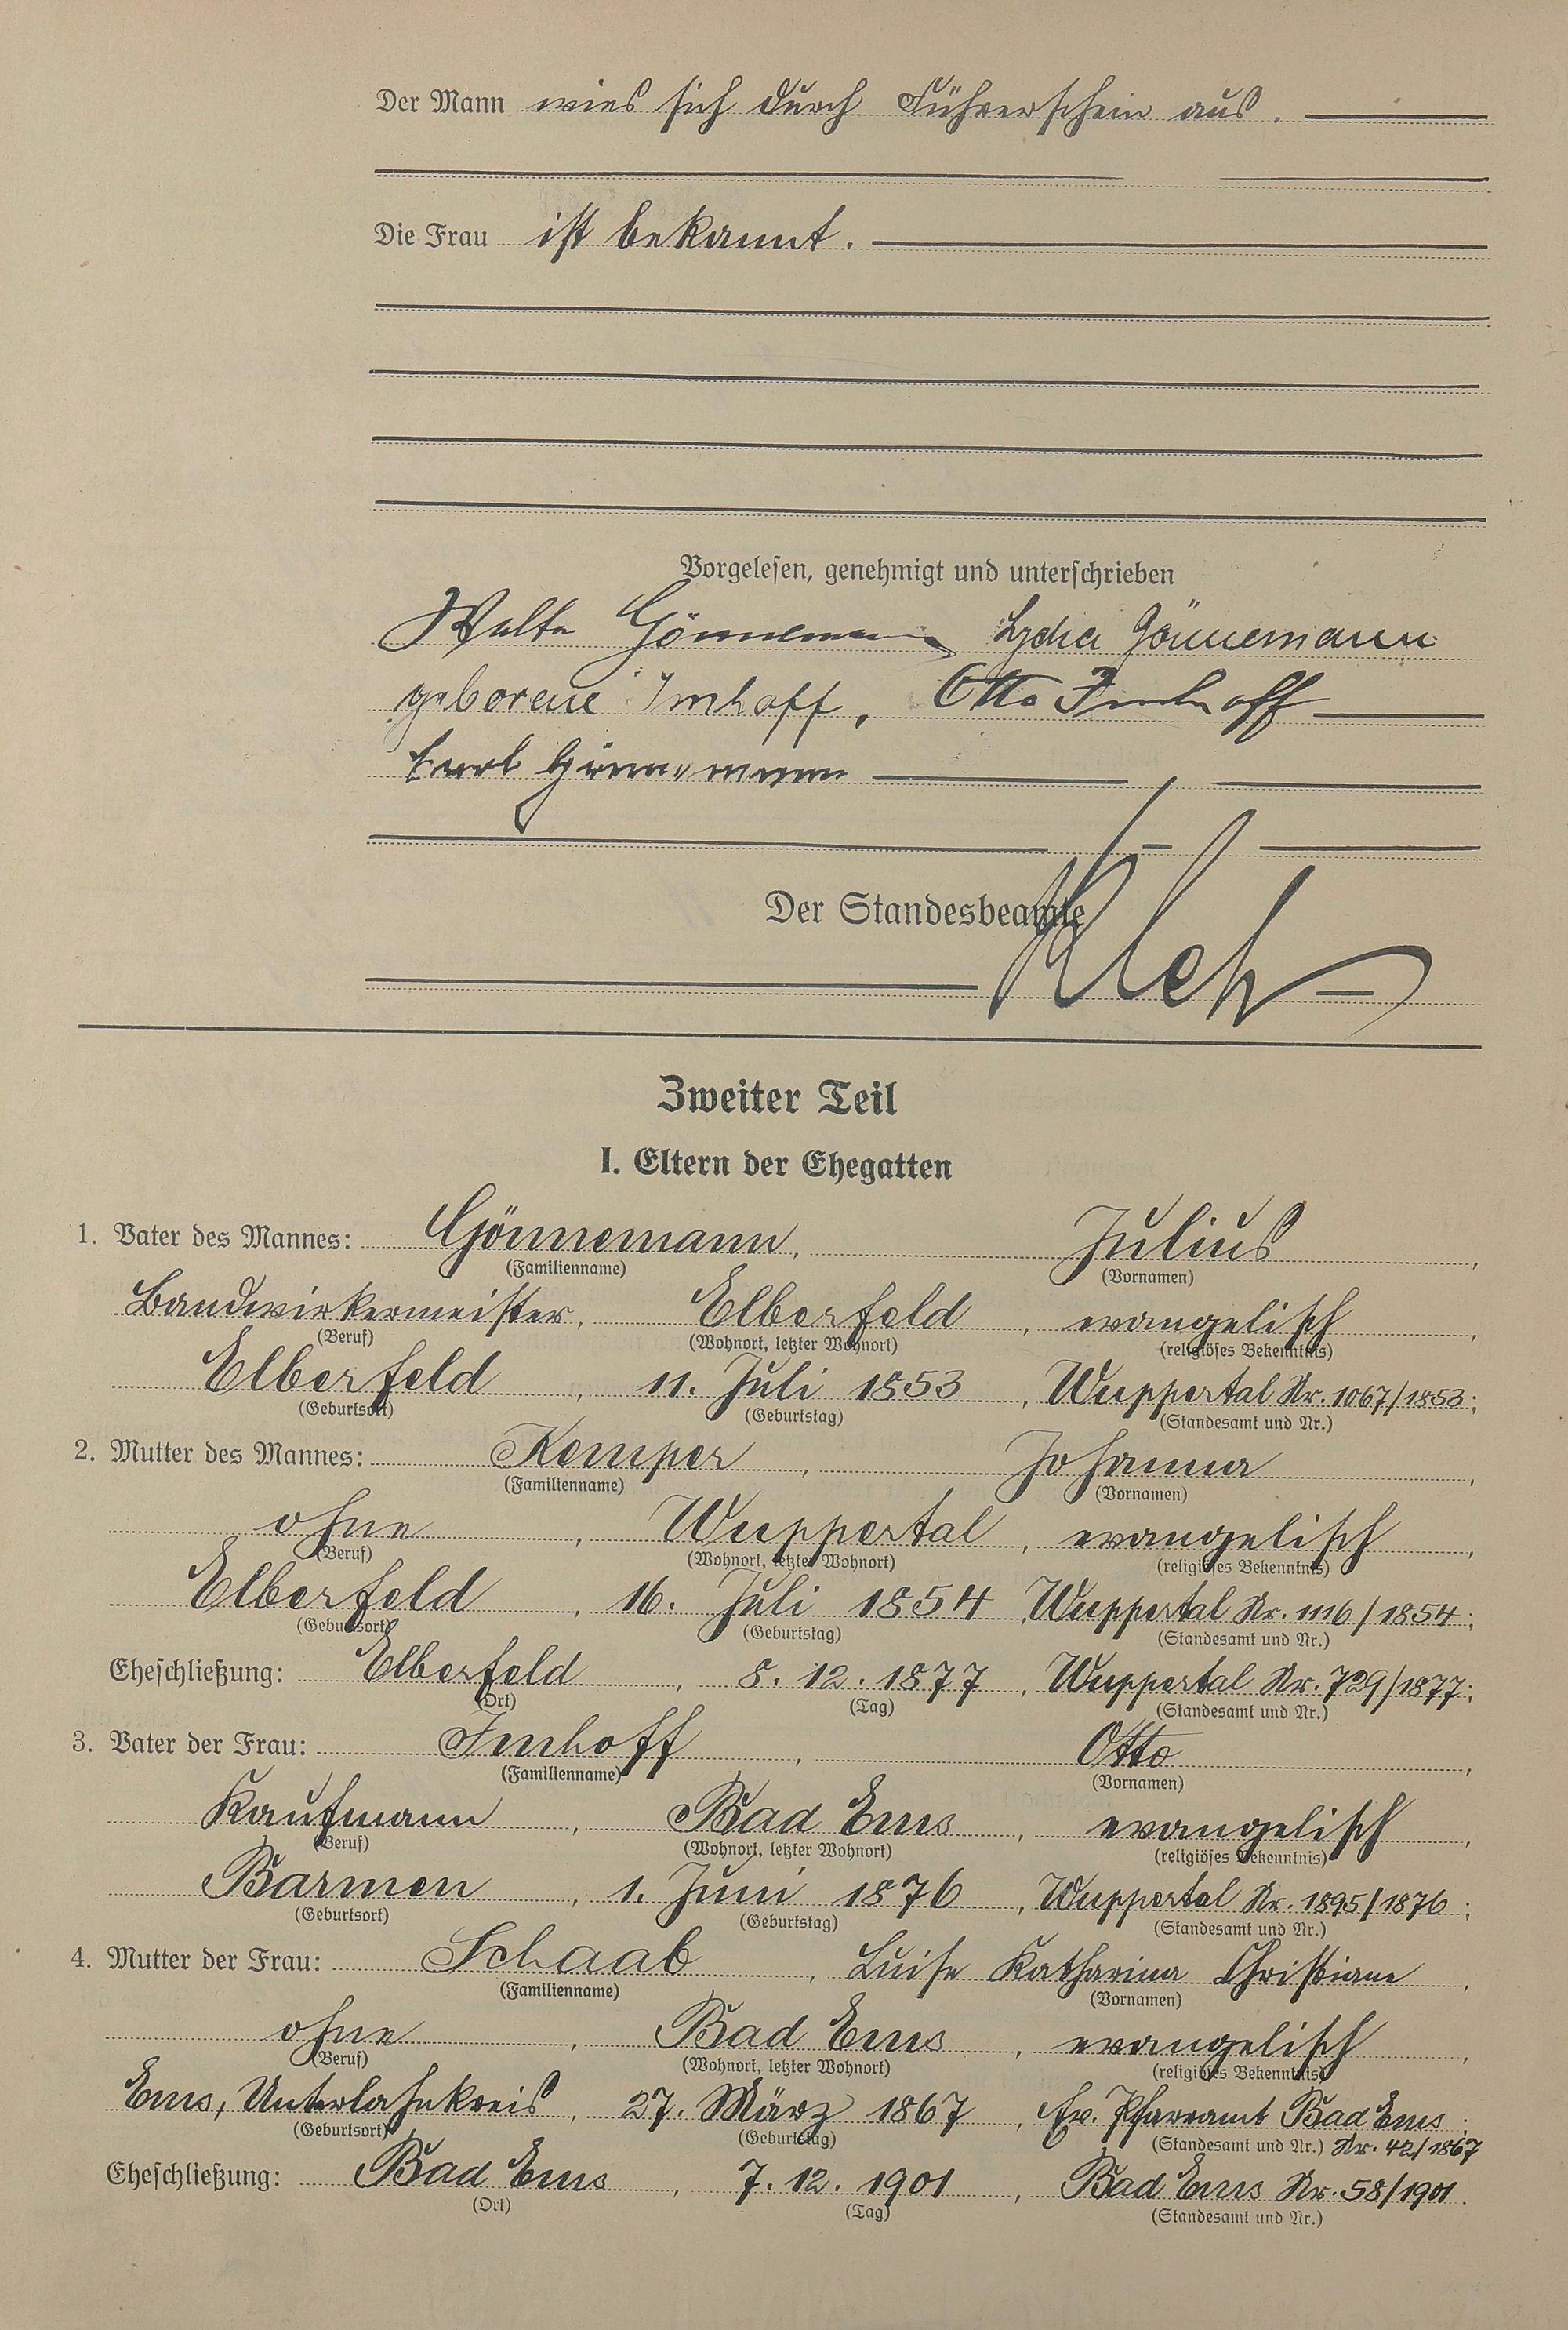 Der Mann wies sich durch Führerschein aus.
Die Frau ist bekannt.
Vorgelesen, genehmigt und unterschrieben
Walter Gönnemann Lydia Gönnemann
geborene Imhoff, Otto Imhoff
Gönnemann
Der Standesbeamte
Zweiter Teil
I. Eltern der Ehegatten
1. Vater des Mannes: Gönnemann, Julius,
(Familienname) (Vornamen)
Bandwirkermeister, Elberfeld, evangelisch,
(Beruf) (Wohnort, letzter Wohnort) (religiöses Bekenntnis)
Elberfeld, 11. Juli 1853, Wuppertal Nr. 1067/1853;
(Geburtsort) (Geburtstag) (Standesamt und Nr.)
2. Mutter des Mannes: Kemper, Johanna,
(Familienname) (Vornamen)
ohne, Wuppertal, evangelisch,
(Beruf) (Wohnort, letzter Wohnort) (religiöses Bekenntnis)
Elberfeld, 16. Juli 1854, Wuppertal Nr. 1116/1854;
(Geburtsort) (Geburtstag) (Standesamt und Nr.)
Eheschließung: Elberfeld, 8. 12. 1877, Wuppertal Nr. 729/1877;
(Ort) (Tag) (Standesamt und Nr.)
3. Vater der Frau: Imhoff, Otto,
(Familienname) (Vornamen)
Kaufmann, Bad Ems, evangelisch,
(Beruf) (Wohnort, letzter Wohnort) (religiöses Bekenntnis)
Barmen, 1. Juni 1876, Wuppertal Nr. 1895/1876;
(Geburtsort) (Geburtstag) (Standesamt und Nr.)
4. Mutter der Frau: Schaab, Luise Katharina Christiane,
(Familienname) (Vornamen)
ohne, Bad Ems, evangelisch,
(Beruf) (Wohnort, letzter Wohnort) (religiöses Bekenntnis)
Ems, Unterlahnkreis, 27. März 1867, Ev. Pfarramt Bad Ems;
(Geburtsort) (Geburtstag) (Standesamt und Nr.) Nr. 42/1867
Eheschließung: Bad Ems, 7. 12. 1901, Bad Ems Nr. 58/1901.
(Ort) (Tag) (Standesamt und Nr.)